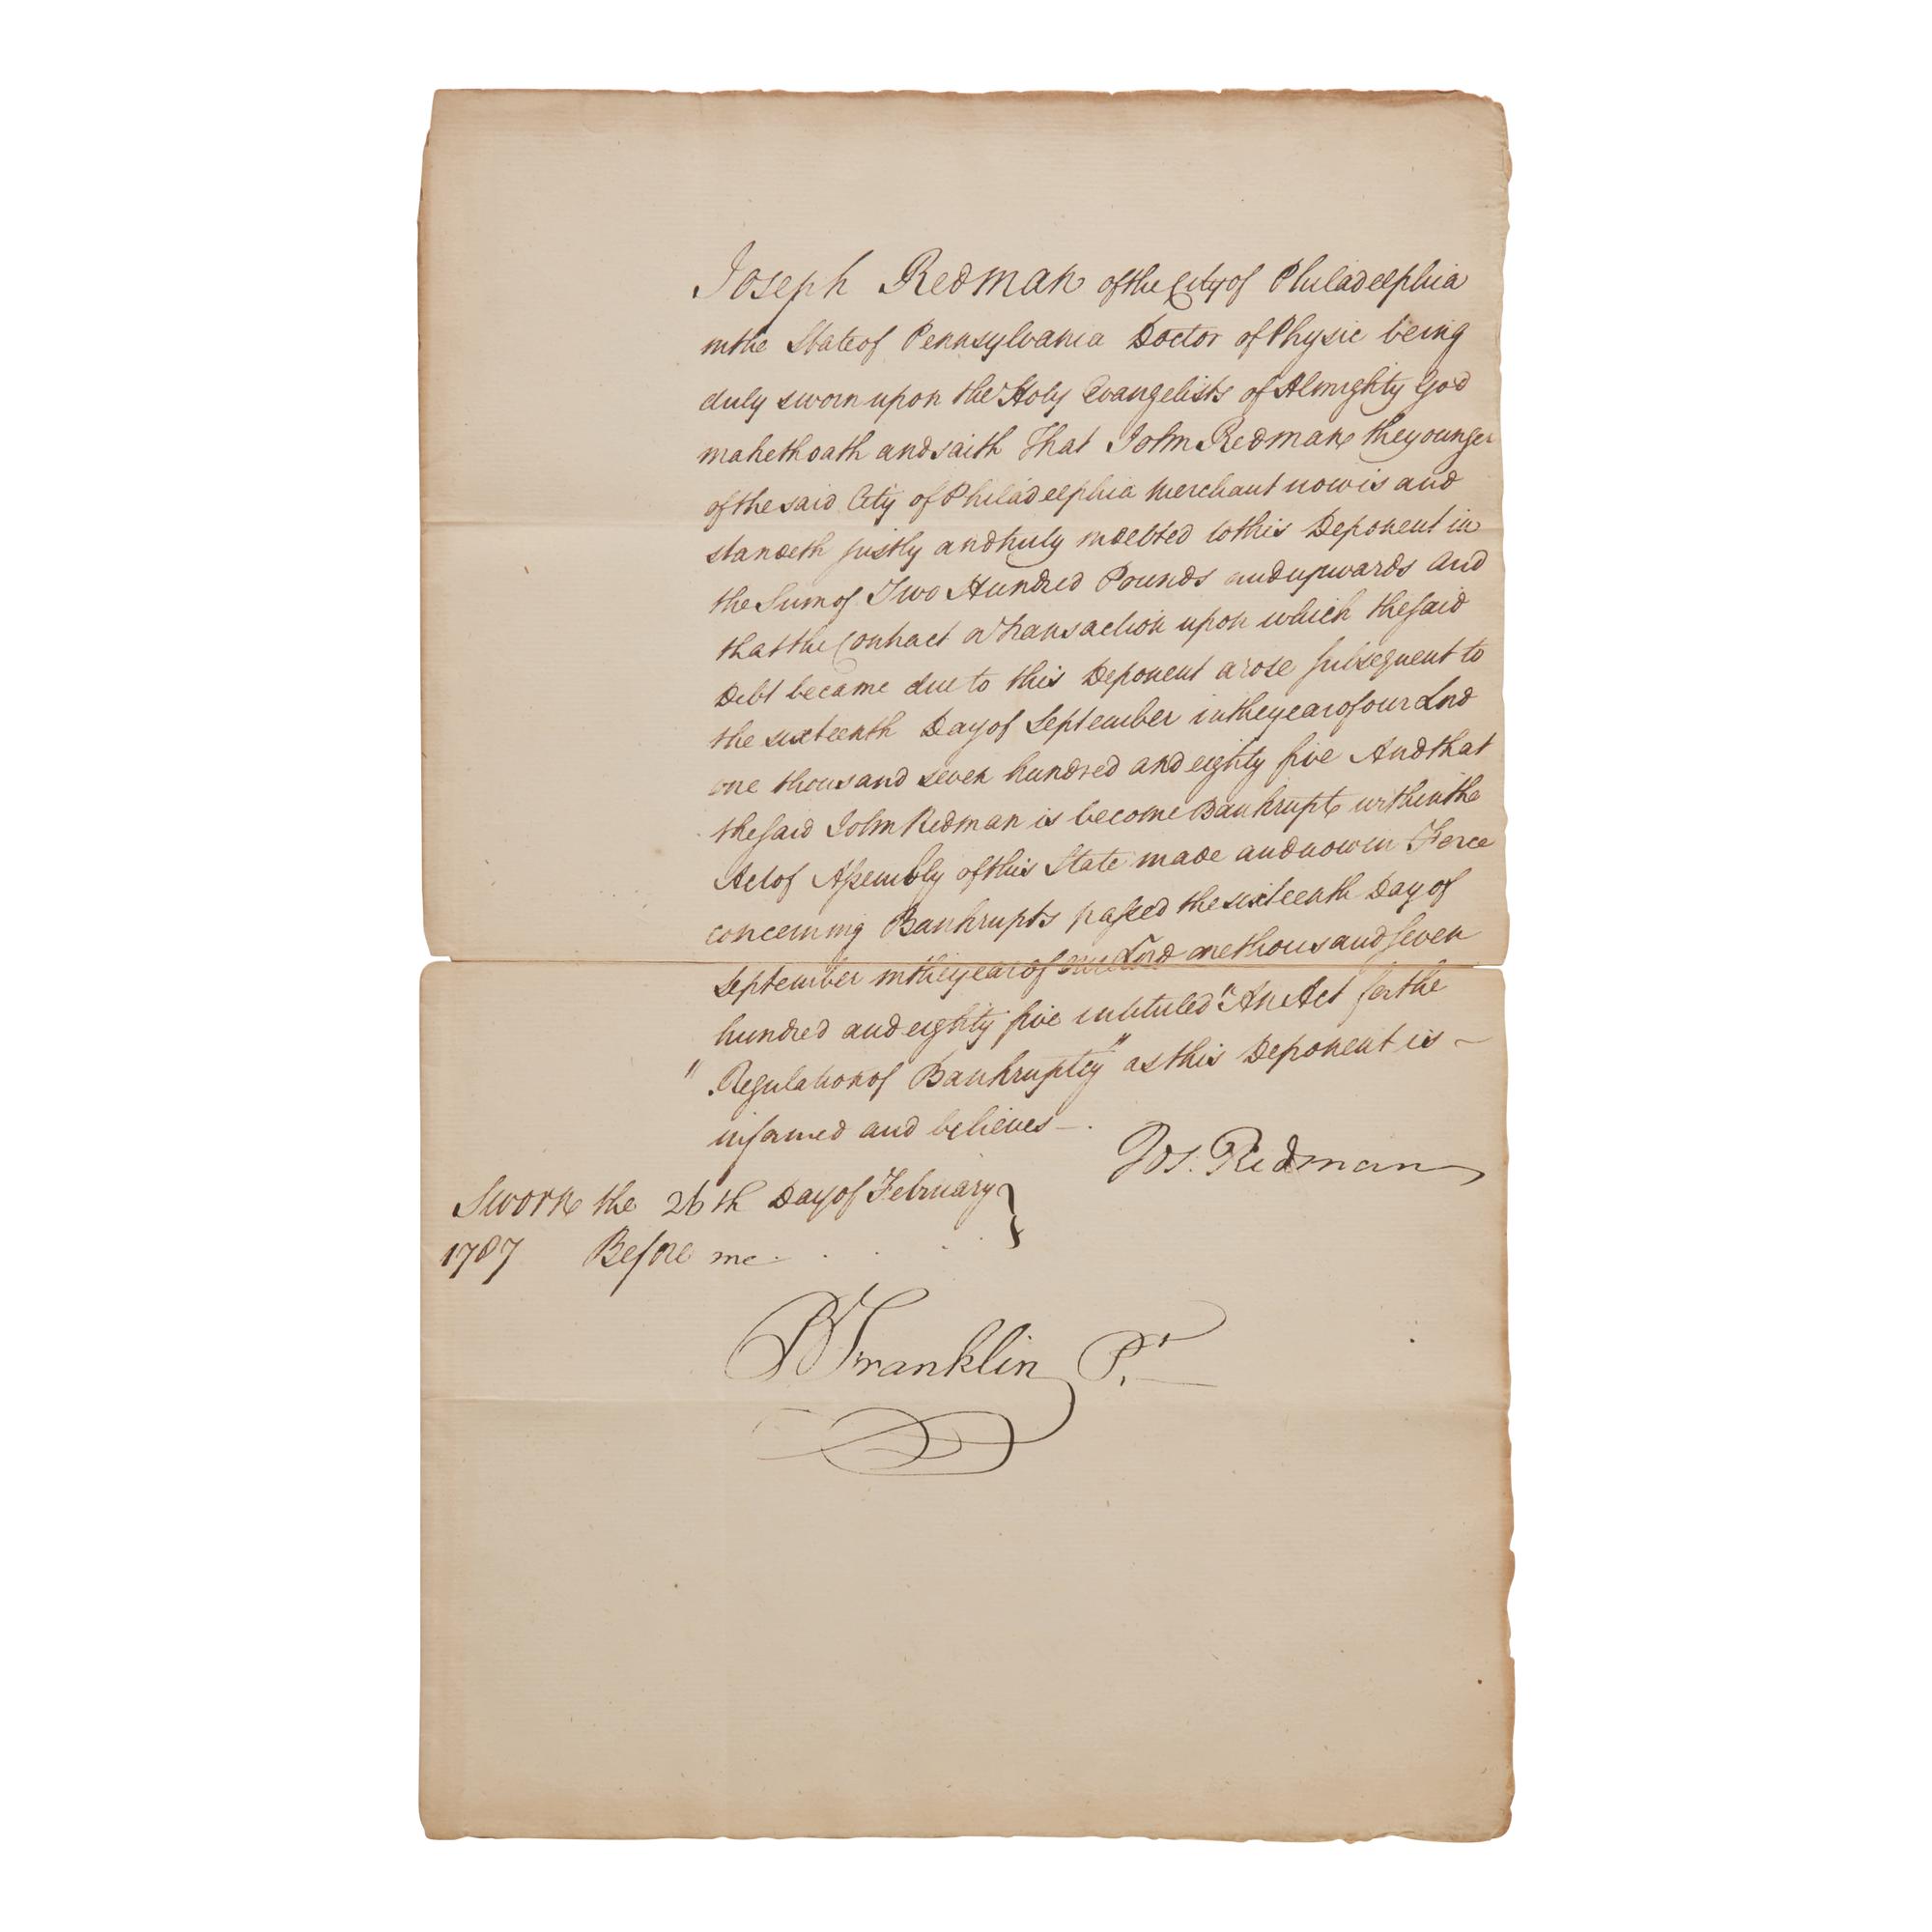 Joseph Redman of the City of Philadelphia
in the State of Pennsylvania Doctor of Physic being
duly sworn upon the Holy Evangelists of Almighty God
maketh oath and saith That John Redman the younger
of the said City of Philadelphia Merchant now is and
standeth justly and truly indebted to this Deponent in
the Sum of Two Hundred Pounds and upwards and
that the Contract or Transaction upon which the said
Debt became due to this Deponent arose subsequent to
the sixteenth Day of September in the year of our Lord
one thousand seven hundred and eighty five And that
the said John Redman is become Bankrupt within the
Act of Assembly of this State made and now in Force
concerning Bankrupts passed the sixteenth Day of
September in the year of our Lord one thousand seven
hundred and eighty five intituled "An Act for the
" Regulation of Bankruptcy" as this Deponent is –
informed and believes –.
Jos. Redman
Sworn the 26th Day of February }
1787 Before me . . . . .
B Franklin Pr.